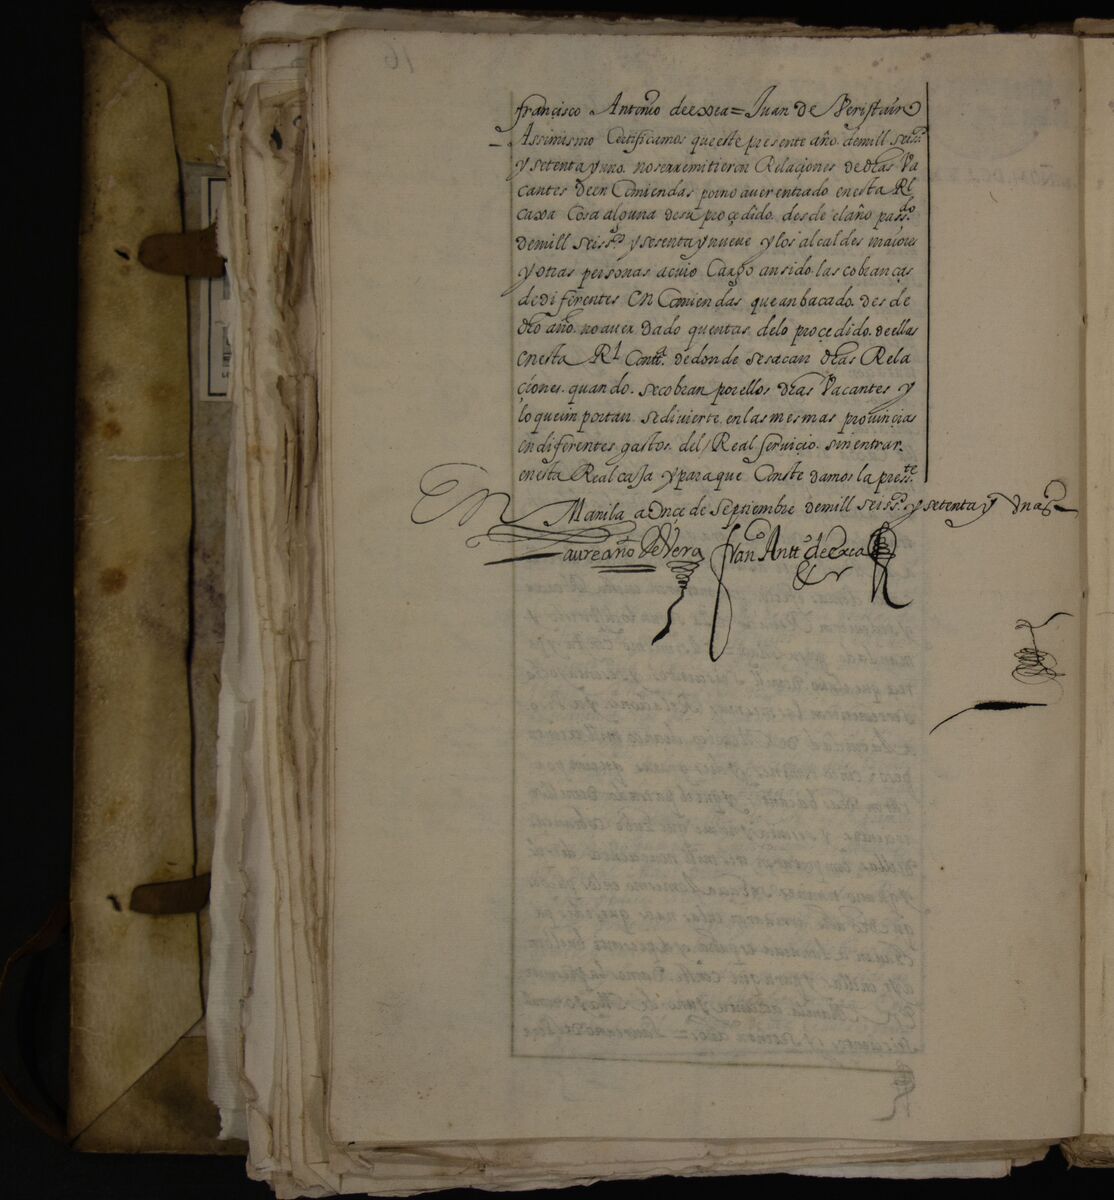 francisco Antonio deexea = Juan de Veristain
Assimismo Certificamos queeste presente año. demill seiss.
y setenta y uno. noserremitieron Relaciones de dhas Va
cantes deen Comiendas porno aver entrado enesta Rl
caxa Cosa alguna desu proçedido. desde elaño passdo.
demill seiss.s y sesenta y nueve y los alcaldes maiores
y otras personas acuio Cargo ansido. las cobranças
dediferentes en Comiendas que an bacado. desde
dho año. no aver dado quentas. delo proçedido. deellas
enesta Rl Contta. dedonde sesacan dhas Rela
çiones. quando. secobran por ellos dhas Vacantes y
lo queim portan. sedivierte. en las mesmas provinçias
en diferentes. gastos. del Real servicio. sin entrar.
enesta Real caja y para que Conste damos la presste.
En Manila a Onçe de Septiembre demill seiss.s y setenta y un as
aureano de Vera fran.co Antt.o de Exea